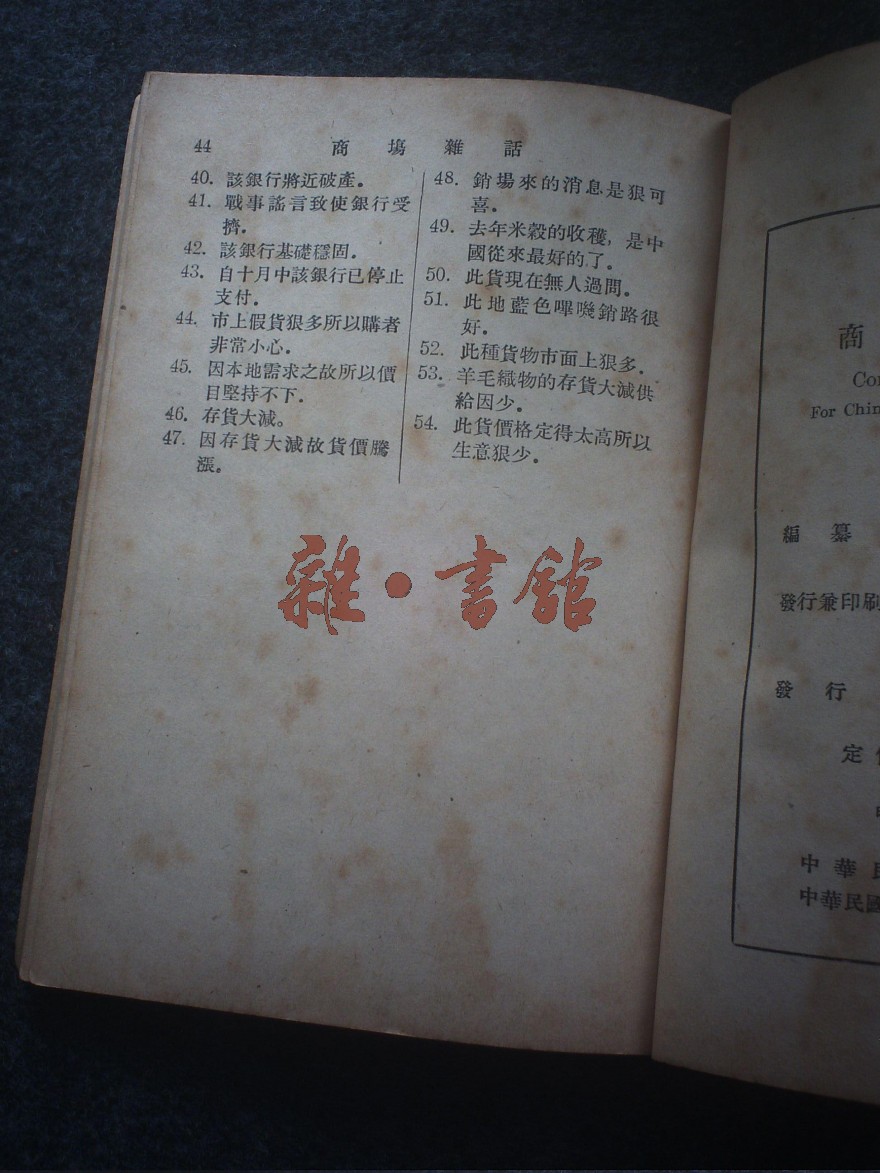 44 商場雜話
40. 該銀行將近破產。
41. 戰事謠言致使銀行受
擠。
42. 該銀行基礎穩固。
43. 自十月中該銀行已停止
支付。
44. 市上假貨狠多所以購者
非常小心。
45. 因本地需求之故所以價
目堅持不下。
46. 存貨大減。
47. 因存貨大減故貨價騰
漲。
48. 銷場來的消息是狠可
喜。
49. 去年米穀的收穫，是中
國從來最好的了。
50. 此貨現在無人過問。
51. 此地藍色嗶嘰銷路很
好。
52. 此種貨物市面上狠多。
53. 羊毛織物的存貨大減供
給因少。
54. 此貨價格定得太高所以
生意狠少。
雜·書館
商
For Chin
編纂
發行兼印刷
發行
定
中華民
中華民國